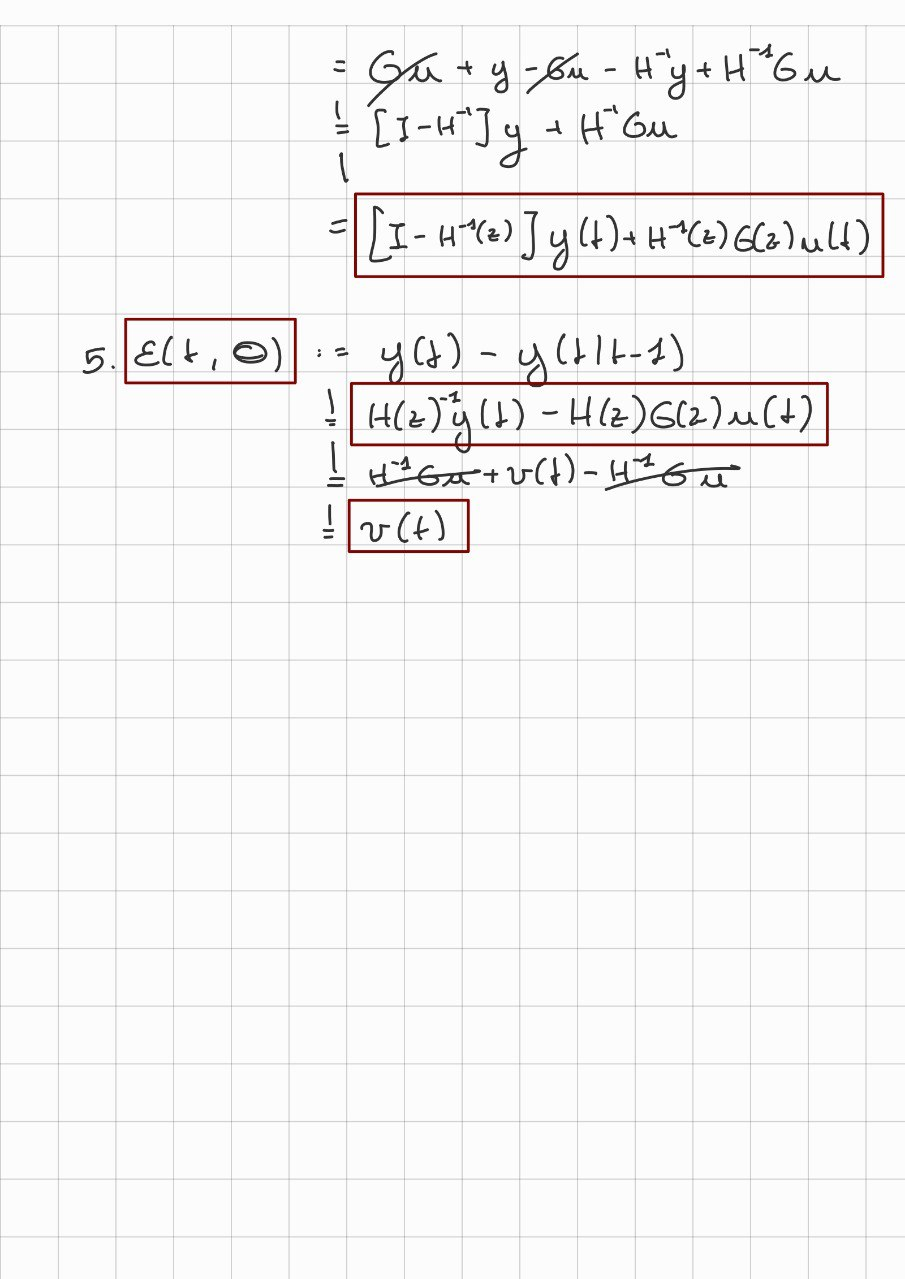 = Gu + y - Gu - H⁻¹y + H⁻¹Gu
= [I - H⁻¹] y + H⁻¹Gu
= [I - H⁻¹(z)] y(t) + H⁻¹(z) G(z) u(t)
5. ε(t, Θ) := y(t) - y(t|t-1)
= H(z)⁻¹y(t) - H(z)G(z)u(t)
= H⁻¹Gu + v(t) - H⁻¹Gu
= v(t)